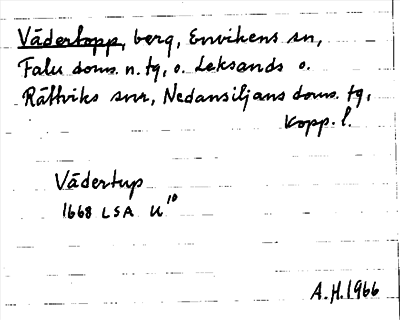 Vädertopp, berg, Envikens sn,
Falu doms. n. tg, o. Leksands o.
Rättviks snr, Nedansiljans doms. tg,
Kopp. l.
Vädertup
1668 LSA U¹⁰
A.H. 1966